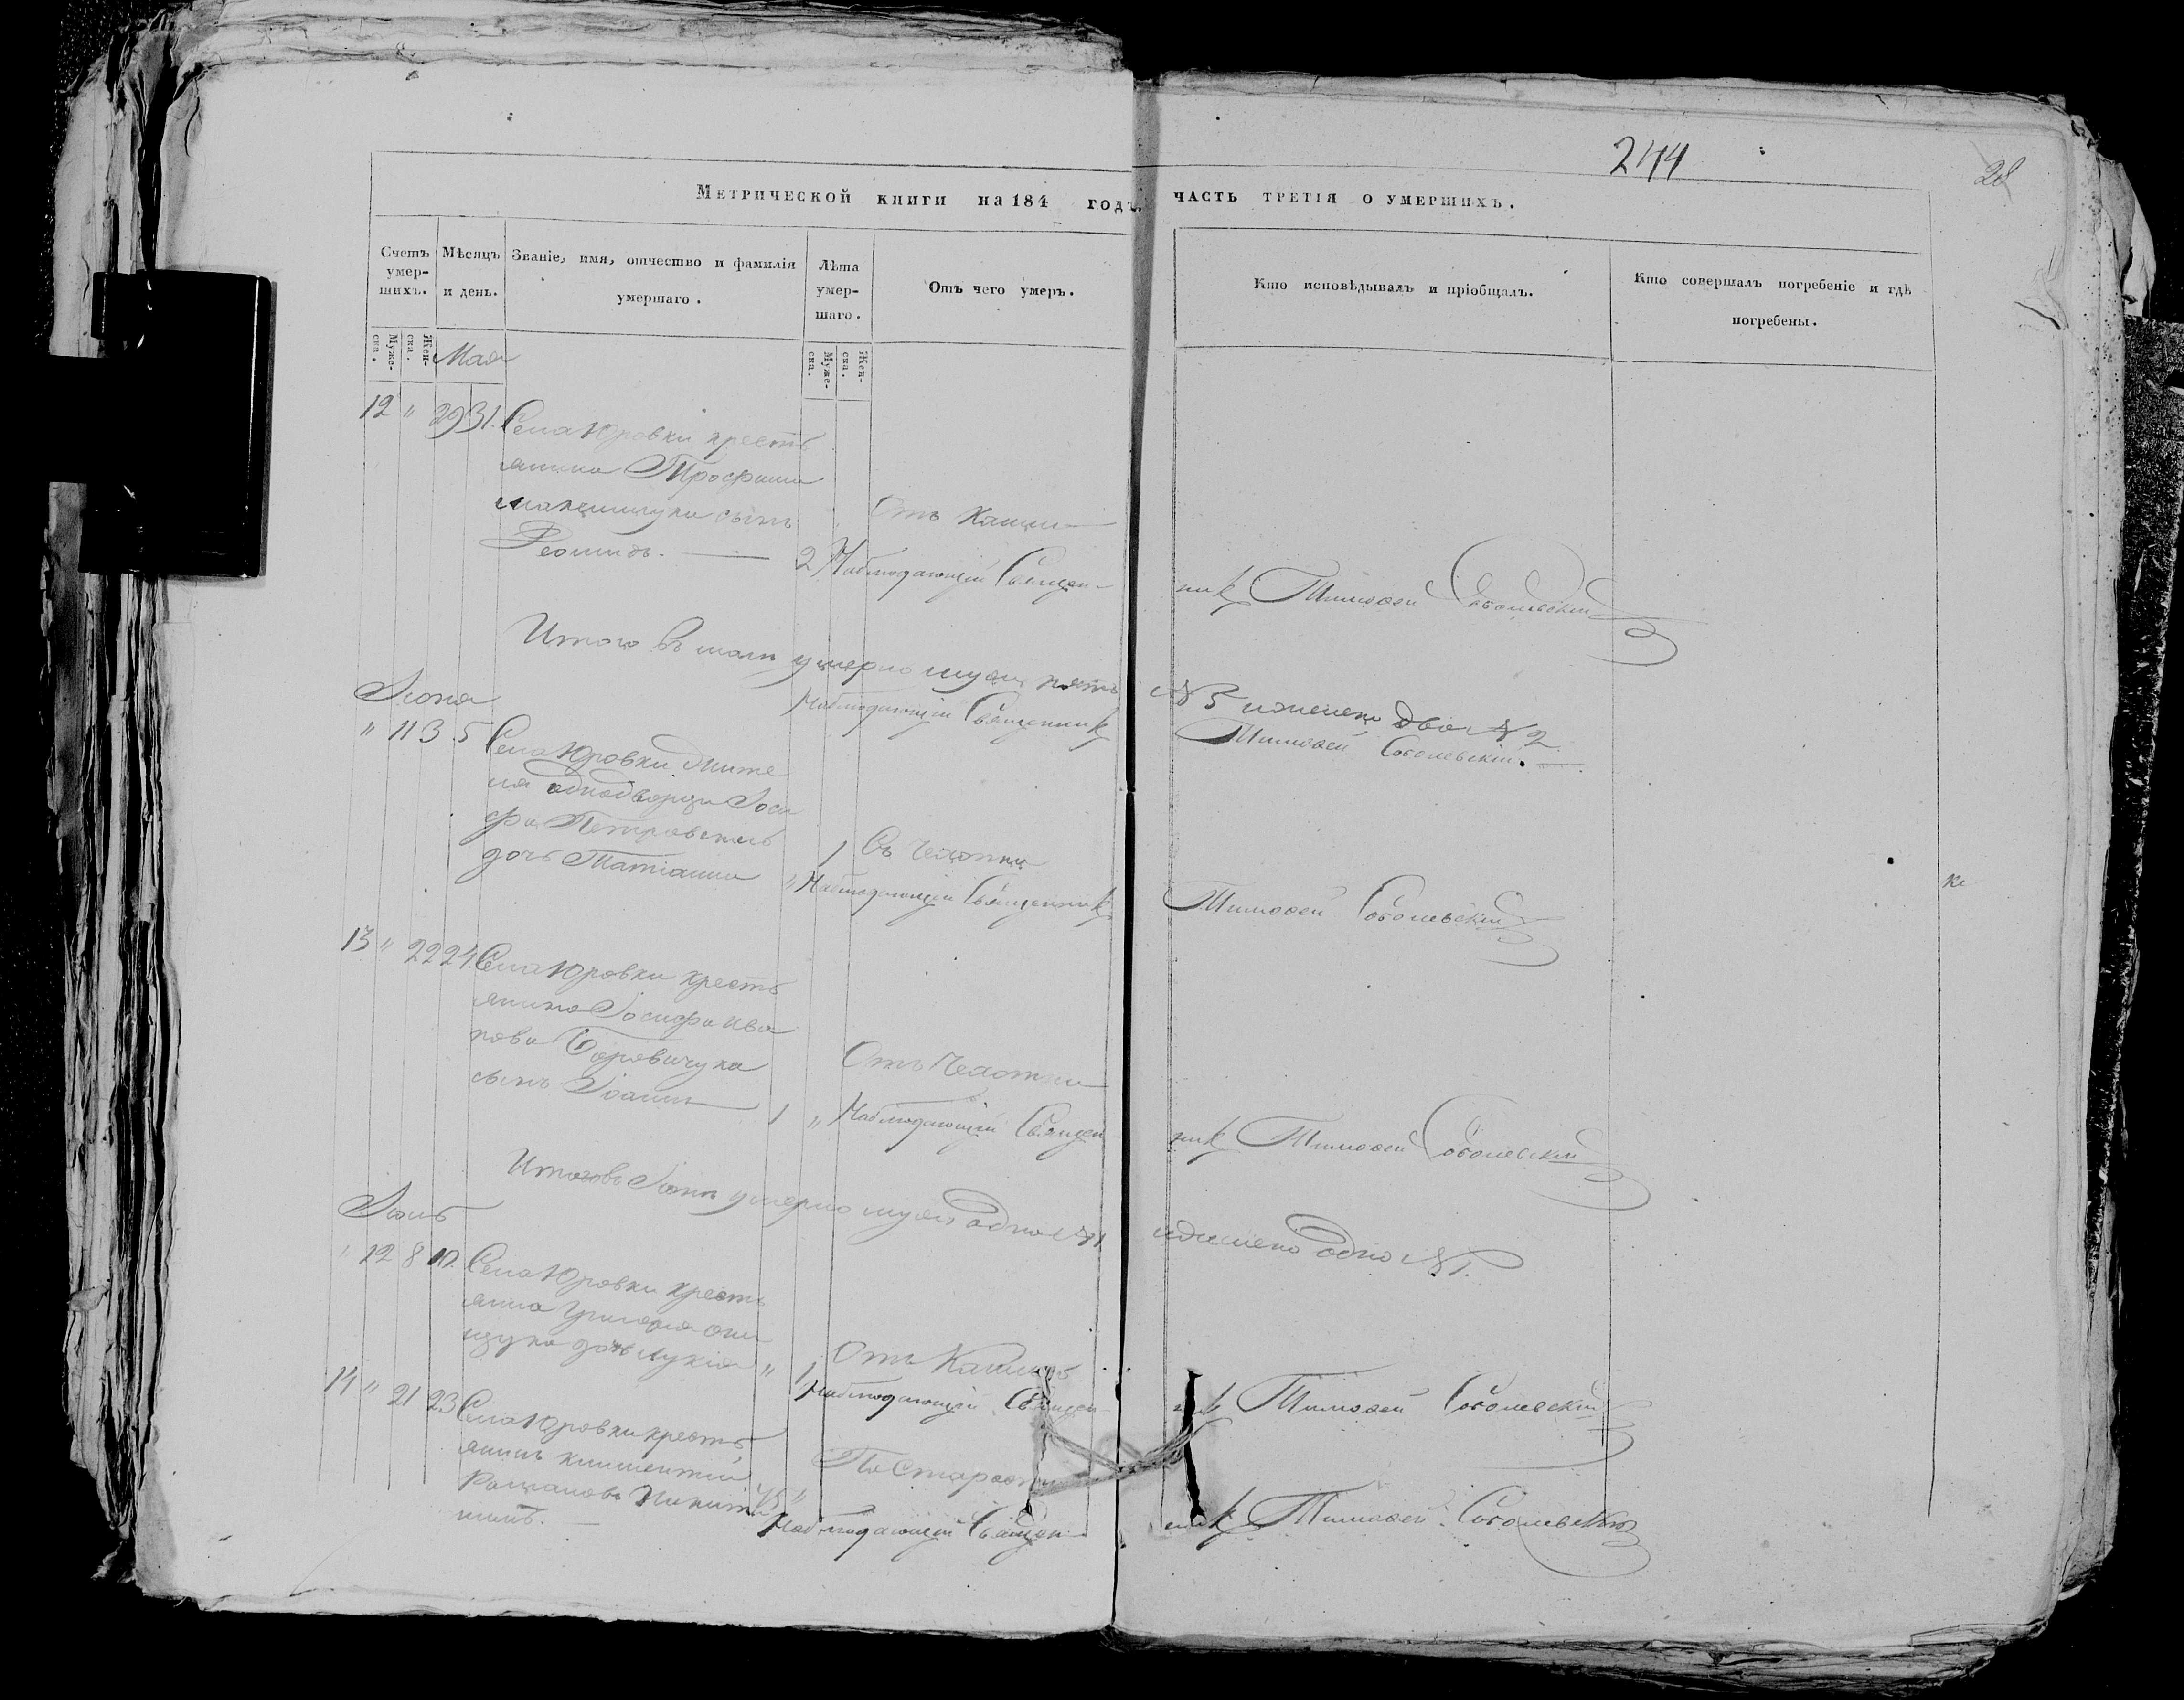 244
28
Метрической книги на 184 годъ, часть третія о умершихъ.
Счетъ умер-шихъ.
Мѣсяцъ и день.
Званіе, имя, отчество и фамилія умершаго.
Лѣта умер-шаго.
Отъ чего умеръ.
Кто исповѣдывалъ и пріобщалъ.
Кто совершалъ погребеніе и гдѣ погребены.
Муже-ска.
Жен-ска.
Муже-ска.
Жен-ска.
Мая
12 " 29 31. Села Юровки кресть
янина Трофима
сынъ
Отъ Кашли
2 Наблюдающій Священ-
никъ Тимофей Соболевскій
Итого въ маи умерло муж. пять
№ 5 и женска два № 2.
Наблюдающій Священникъ
Тимофей Соболевскій.
Іюня
" 11 3 5 Села Юровки жите
ля однодворца Іоси
фа Петровскаго
дочь Татіанна
1 Съ Чехотки
" Наблюдающій Священникъ
Тимофей Соболевскій
13 " 22 24. Села Юровки кресть
янина Іосифа Ива
нова
сынъ Іоанн
1 "
Отъ Чехотки
Наблюдающій Священ
никъ Тимофей Соболевскій
Итого въ Іюнѣ умерло муж. одно № 1
и женско одно № 1.
Іюль
" 12 8 10. Села Юровки кресть
янина Григорія Они
щука дочь Лукія
" 1
Отъ Кашля
Наблюдающій Священ-
никъ Тимофей Соболевскій
14 " 21 23 Села Юровки кресть
янинъ Климентій
Романовъ
По Старости
Наблюдающій Священ-
никъ Тимофей Соболевскій